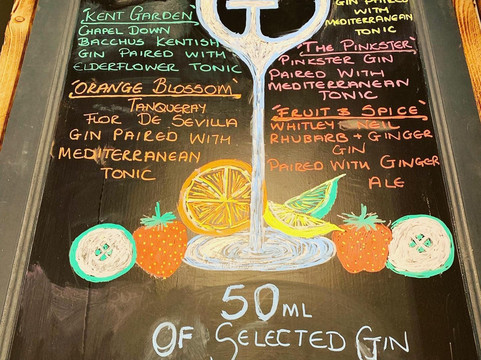 "KENT GARDEN"
CHAPEL DOWN
BACCHUS KENTISH
GIN PAIRED WITH
ELDERFLOWER TONIC
"ORANGE BLOSSOM"
TANQUERAY
FLOR DE SEVILLA
GIN PAIRED WITH
MEDITERRANEAN
TONIC
GIN PAIRED
WITH
MEDITERRANEAN
TONIC
"THE PINKSTER"
PINKSTER GIN
PAIRED WITH
MEDITERRANEAN
TONIC
"FRUIT & SPICE"
WHITLEY NEIL
RHUBARB + GINGER
GIN
PAIRED WITH GINGER
ALE
50ML
OF SELECTED GIN